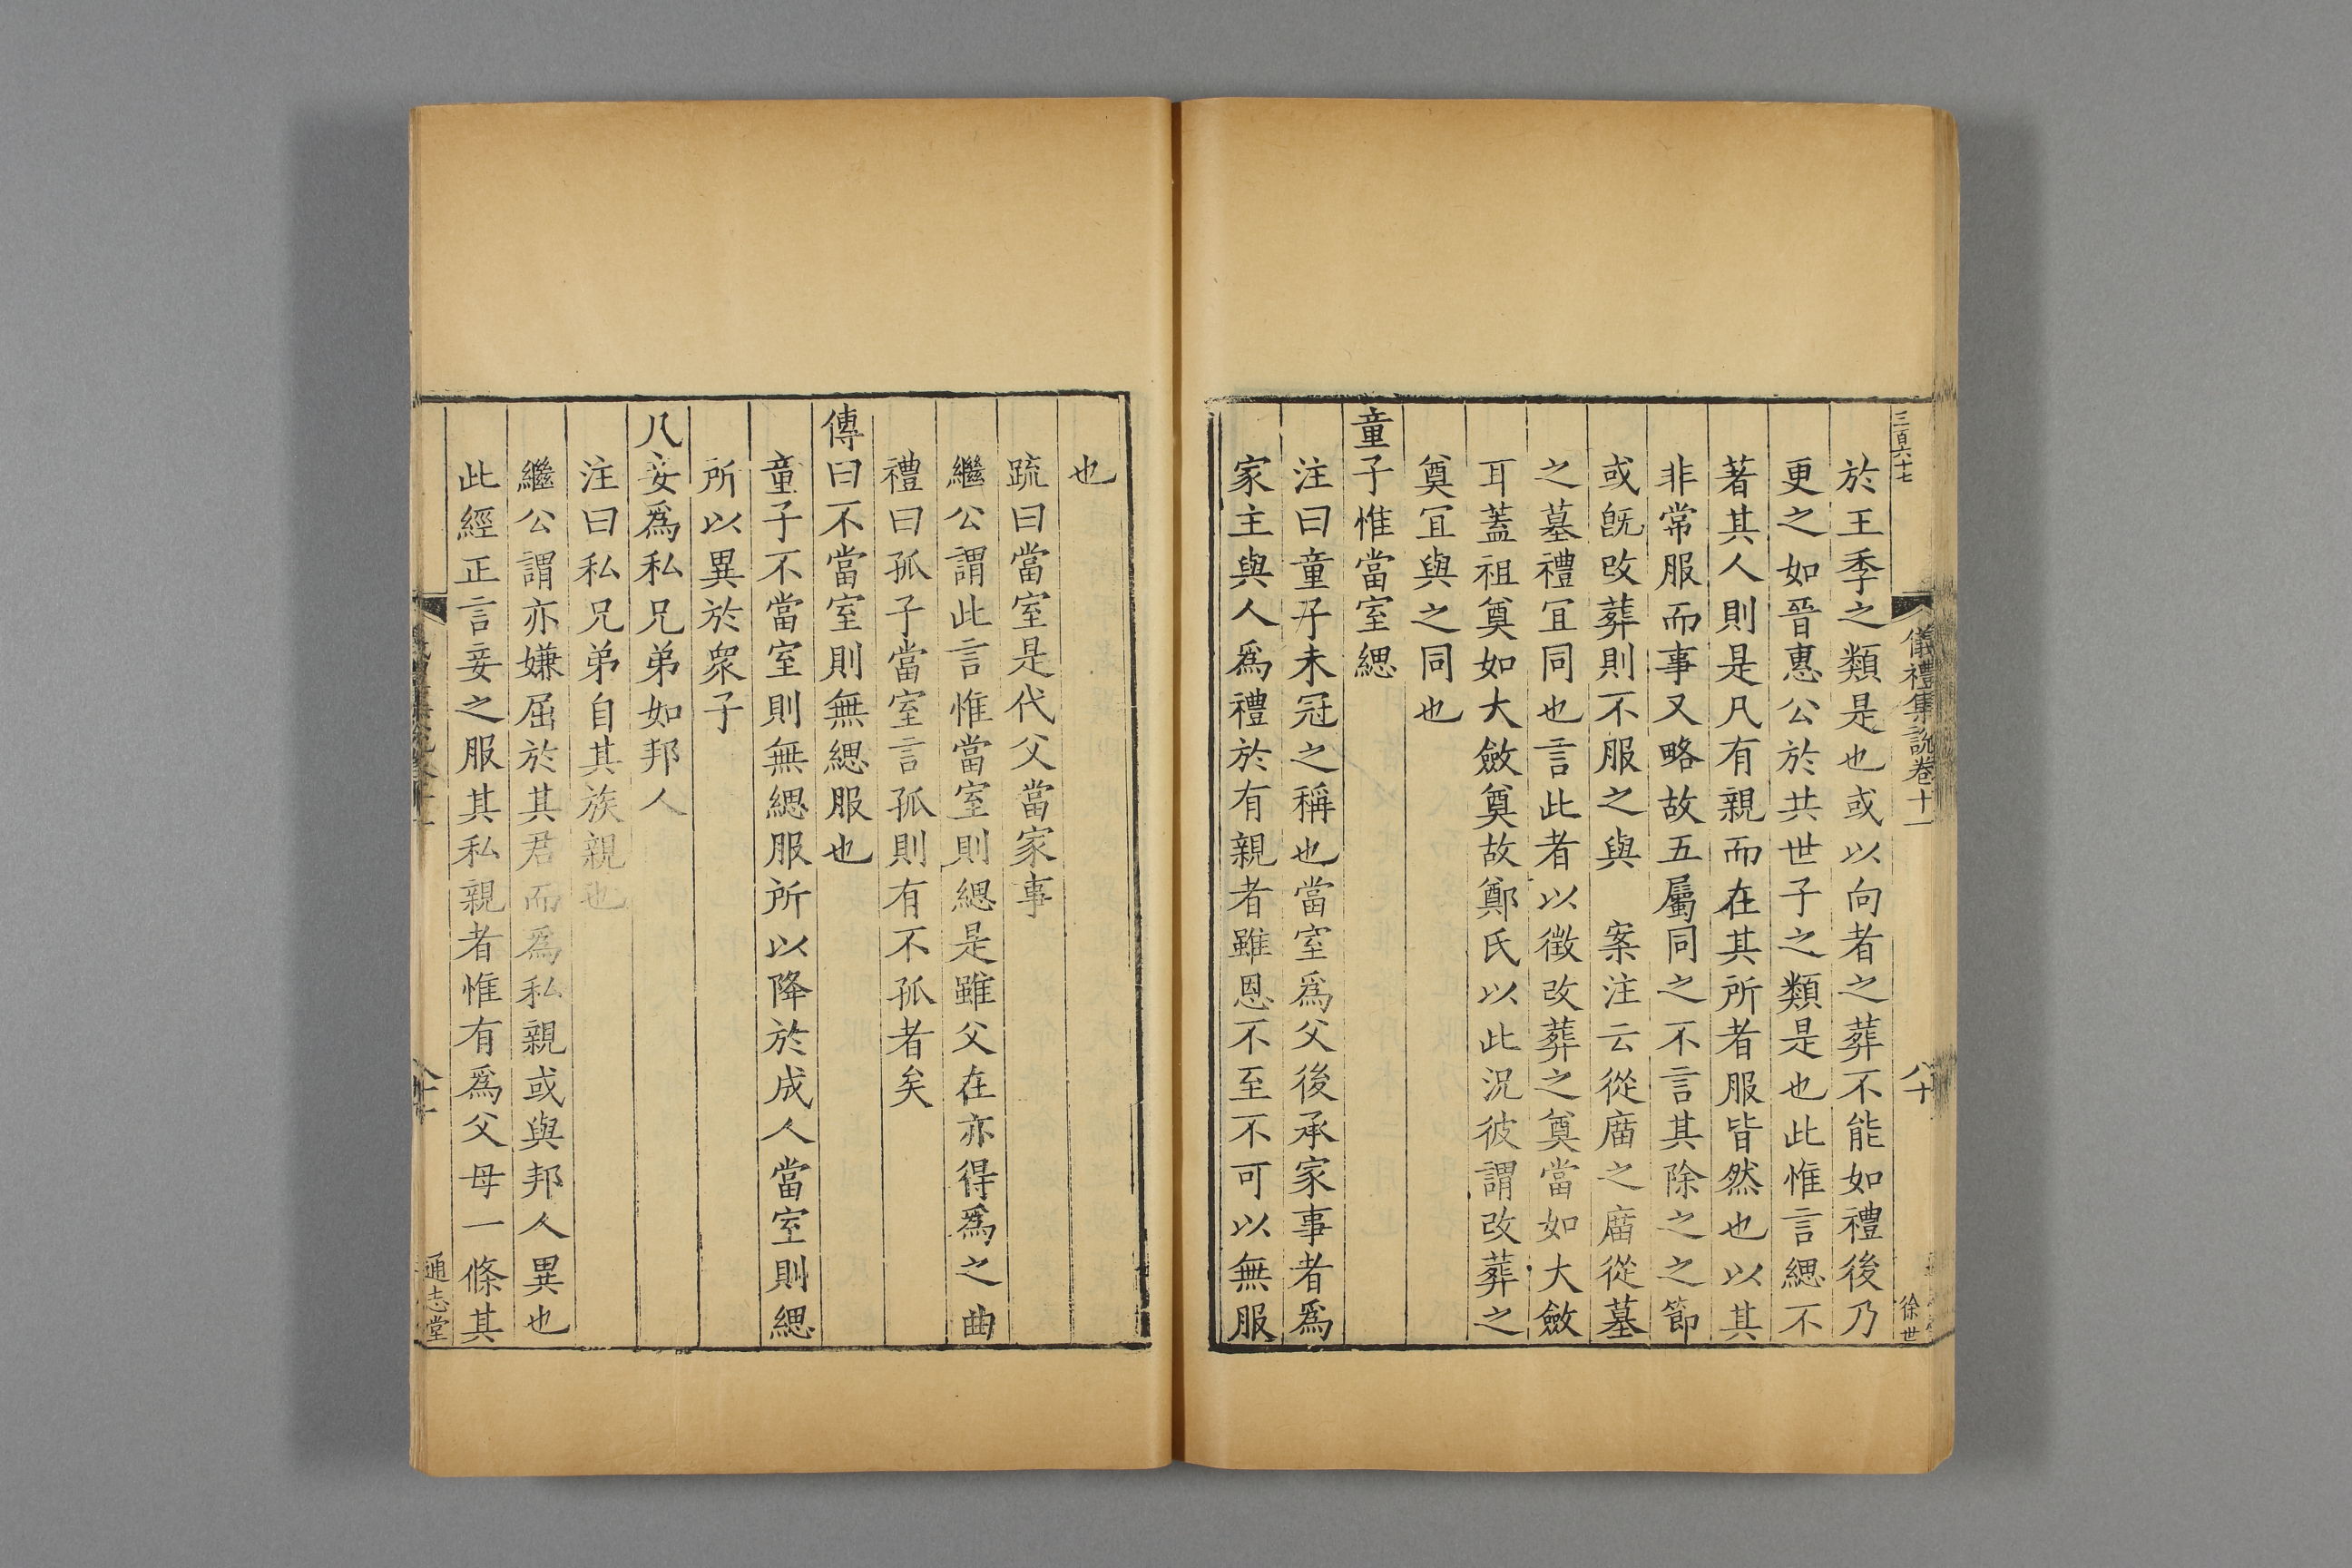 三百六十七
儀禮集說卷十一
八十
徐世
於王季之類是也或以向者之葬不能如禮後乃
更之如晉惠公於共世子之類是也此惟言緦不
著其人則是凡有親而在其所者服皆然也以其
非常服而事又略故五屬同之不言其除之之節
或旣改葬則不服之與　案注云從廟之廟從墓
之墓禮宜同也言此者以徵改葬之奠當如大斂
耳蓋祖奠如大斂奠故鄭氏以此況彼謂改葬之
奠宜與之同也
童子惟當室緦
注曰童子未冠之稱也當室爲父後承家事者爲
家主與人爲禮於有親者雖恩不至不可以無服
也
疏曰當室是代父當家事
繼公謂此言惟當室則緦是雖父在亦得爲之曲
禮曰孤子當室言孤則有不孤者矣
傳曰不當室則無緦服也
童子不當室則無緦服所以降於成人當室則緦
所以異於衆子
凡妾爲私兄弟如邦人
注曰私兄弟自其族親也
繼公謂亦嫌屈於其君而爲私親或與邦人異也
此經正言妾之服其私親者惟有爲父母一條其
通志堂